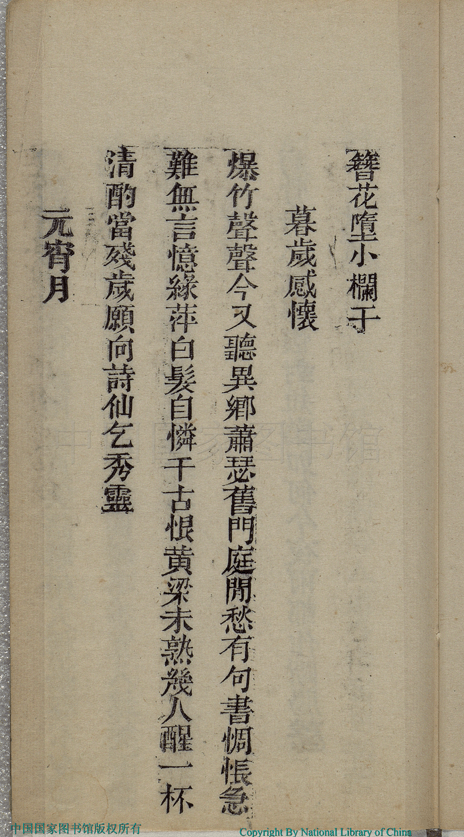 簪花墮小欄干
暮歲感懷
爆竹聲聲今又聽異鄉蕭瑟舊門庭閒愁有句書惆悵急
難無言憶綠萍白髮自憐千古恨黃粱未熟幾人醒一杯
清酌當殘歲願向詩仙乞秀靈
元宵月
中国国家图书馆版权所有
Copyright By National Library of China